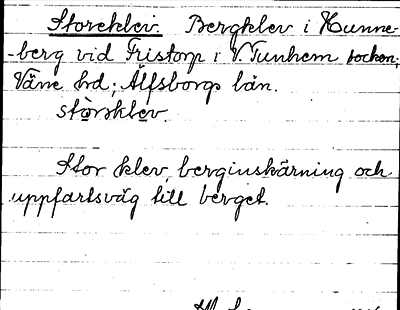 Storeklev. Bergklev i Hunne-
-berg vid Fristorp i V. Tunhem socken,
Väne hd; Älfsborgs län.
stòrsklev.
Stor klev, berginskärning och
uppfartsväg till berget.